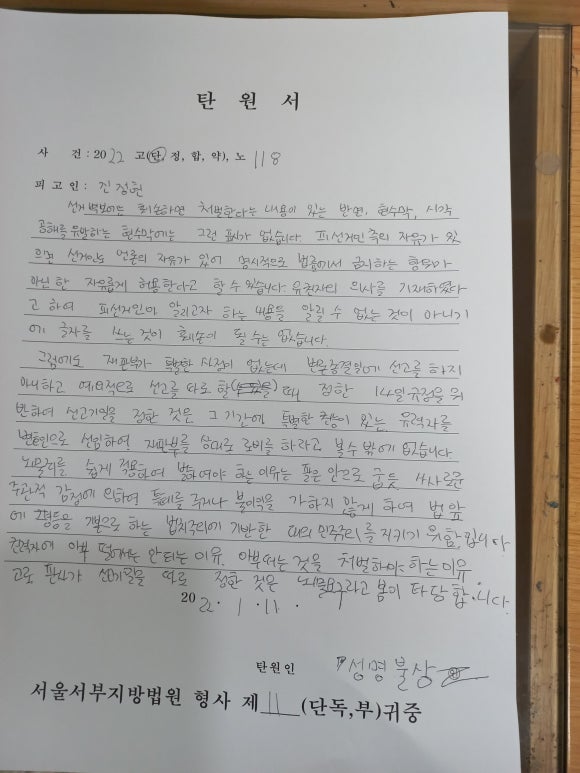 탄 원 서
사 건 : 2022 고(단, 정, 합, 약), 노 118
피 고 인 : 진정현
선거 벽보에는 훼손하면 처벌한다는 내용이 있는 반면, 현수막, 시각
공해를 유발하는 현수막에는 그런 표시가 없습니다. 피선거인 측의 자유가 있
으면 선거인도 언론의 자유가 있어 명시적으로 법률에서 금지하는 행위가
아닌 한 자유롭게 허용한다고 할 수 있습니다. 유권자의 의사를 기재하였다
고 하여 피선거인이 알리고자 하는 내용을 알릴 수 없는 것이 아니기
에 글자를 쓰는 것이 훼손이 될 수는 없습니다.
그럼에도 재판부가 특별한 사정이 없는데 변론종결일에 선고를 하지
아니하고 예외적으로 선고를 따로 할 때 정한 14일 규정을 위
반하여 선고기일을 정한 것은 그 기간에 특별한 친분이 있는 유력자를
변호인으로 선임하여, 재판부를 상대로 로비를 하라고 볼 수 밖에 없습니다.
뇌물죄를 쉽게 적용하여 벌하여야 하는 이유는 팔은 안으로 굽듯 사사로운
주관적 감정에 의하여 특혜를 주거나 불이익을 가하지 않게 하여 법 앞
에 평등을 기본으로 하는 법치주의에 기반한 대의 민주주의를 지키기 위함입니다
권력자에 아부 떨어서는 안되는 이유, 아부떠는 것을 처벌하여야 하는 이유
고로 판사가 선고기일을 따로 정한 것은 뇌물요구라고 봄이 타당합니다.
2022 . 1 . 11 .
탄원인 성명불상
서울서부지방법원 형사 제 11 (단독,부)귀중